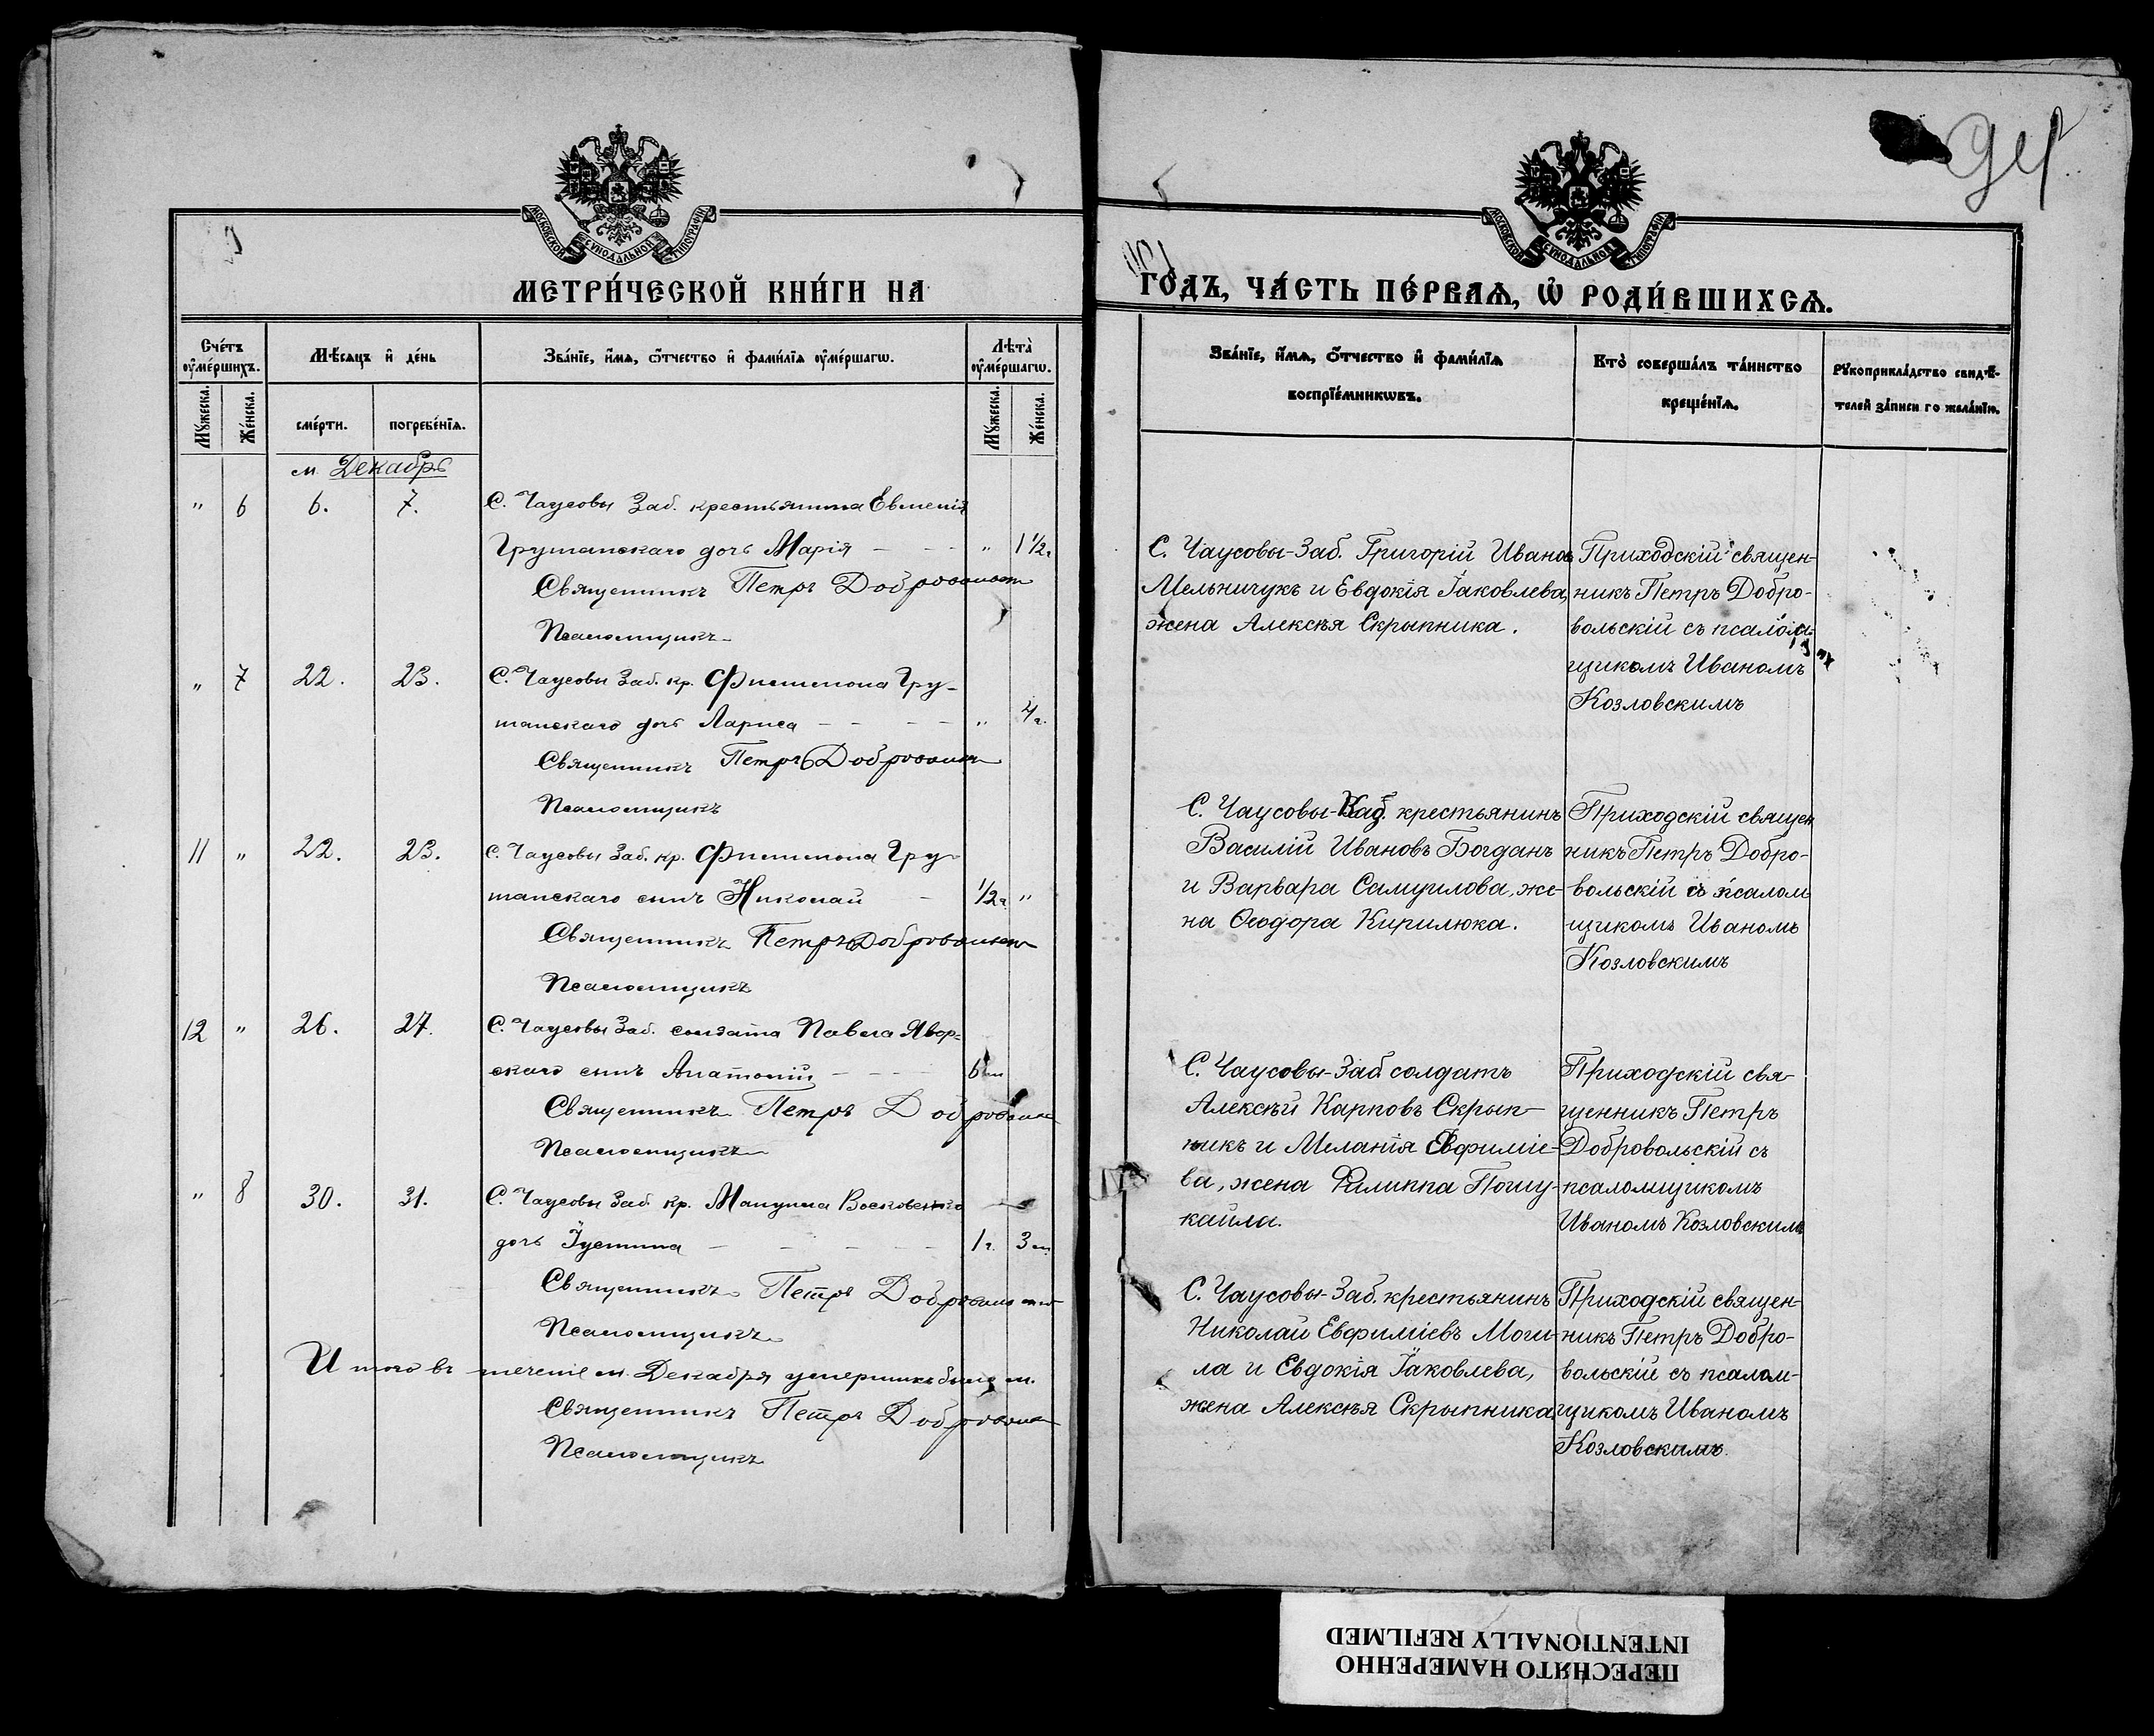 МОСКОВСКОЙ СѴНОДАЛЬНОЙ ТИПОГРАФІИ.
МЕТРИ́ЧЕСКОЙ КНИ́ГИ НА
Сче́тъ ᲂу҆ме́ршихъ.
Мѣ́сяцъ и҆ де́нь
Зва́нїе, и҆́мѧ, ѻ҆́тчество и҆ фами́лїѧ ᲂу҆ме́ршагѡ.
Лѣта̀ ᲂу҆ме́ршагѡ.
Мꙋ́жеска.
Же́нска.
сме́рти.
погребе́нїѧ.
Мꙋ́жеска.
Же́нска.
м. Декабрь
" 6 6. 7. С. Чаусовы Заб. крестьянина Евменія
Грушанскаго дочь Марія - - - " 1 1/2 г.
Священникъ Петръ Добровольск
Псаломщикъ
" 7 22. 23. С. Чаусовы Заб. кр. Филимона Гру-
шанскаго дочь Лариса - - - - " 4 г.
Священникъ Петръ Доброволь
Псаломщикъ
11 " 22. 23. С. Чаусовы Заб. кр. Филимона Гру-
шанскаго сынъ Николай - 1/2 г. "
Священникъ Петръ Добровольск
Псаломщикъ
12 " 26. 27. С. Чаусовы Заб. солдата Павла Явор=
скаго сынъ Анатолій - - - - 6 м
Священникъ Петръ Доброволь
Псаломщикъ
" 8 30. 31. С. Чаусовы Заб. кр.
дочь Іустина - - - - - 1 г. 3 м.
Священникъ Петръ Доброволь
Псаломщикъ
Итого въ теченіе м. Декабря умершихъ было
Священникъ Петръ Доброволь
Псаломщикъ
МОСКОВСКОЙ СѴНОДАЛЬНОЙ ТИПОГРАФІИ.
ГО́ДЪ, ЧА́СТЬ ПЕ́РВАѦ, Ѡ҆ РОДИ́ВШИХСѦ.
Зва́нїе, и҆́мѧ, ѻ҆́тчество и҆ фами́лїѧ
воспрїе́мникѡвъ.
Кто̀ соверша́лъ та́инство
креще́нїѧ.
Рꙋкоприкла́дство свидѣ́-
телей за́писи по жела́нїю.
С. Чаусовы-Заб. Григорій Ивановъ
Мельничукъ и Евдокія Іаковлева,
жена Алексѣя Скрыпника.
Приходскій священ-
никъ Петръ Добро-
вольскій съ псалом-
щикомъ Иваномъ
Козловскимъ
С. Чаусовы-Заб. крестьянинъ
Василій Ивановъ Богданъ
и Варвара Самуилова, же-
на Ѳеодора Кирилюка.
Приходскій священ
никъ Петръ Добро-
вольскій съ псалом
щикомъ Иваномъ
Козловскимъ
С. Чаусовы-Заб. солдатъ
Алексѣй Карповъ Скрып-
никъ и Меланія Евфиміе-
ва, жена Филиппа Пошу-
кайла.
Приходскій свя-
щенникъ Петръ
Добровольскій съ
псаломщикомъ
Иваномъ Козловскимъ
С. Чаусовы-Заб. крестьянинъ
Николай Евфиміевъ Моги-
ла и Евдокія Іаковлева,
жена Алексѣя Скрыпника.
Приходскій священ-
никъ Петръ Добро-
вольскій съ псалом-
щикомъ Иваномъ
Козловскимъ.
ПЕРЕСНЯТО НАМЕРЕННО
INTENTIONALLY REFILMED